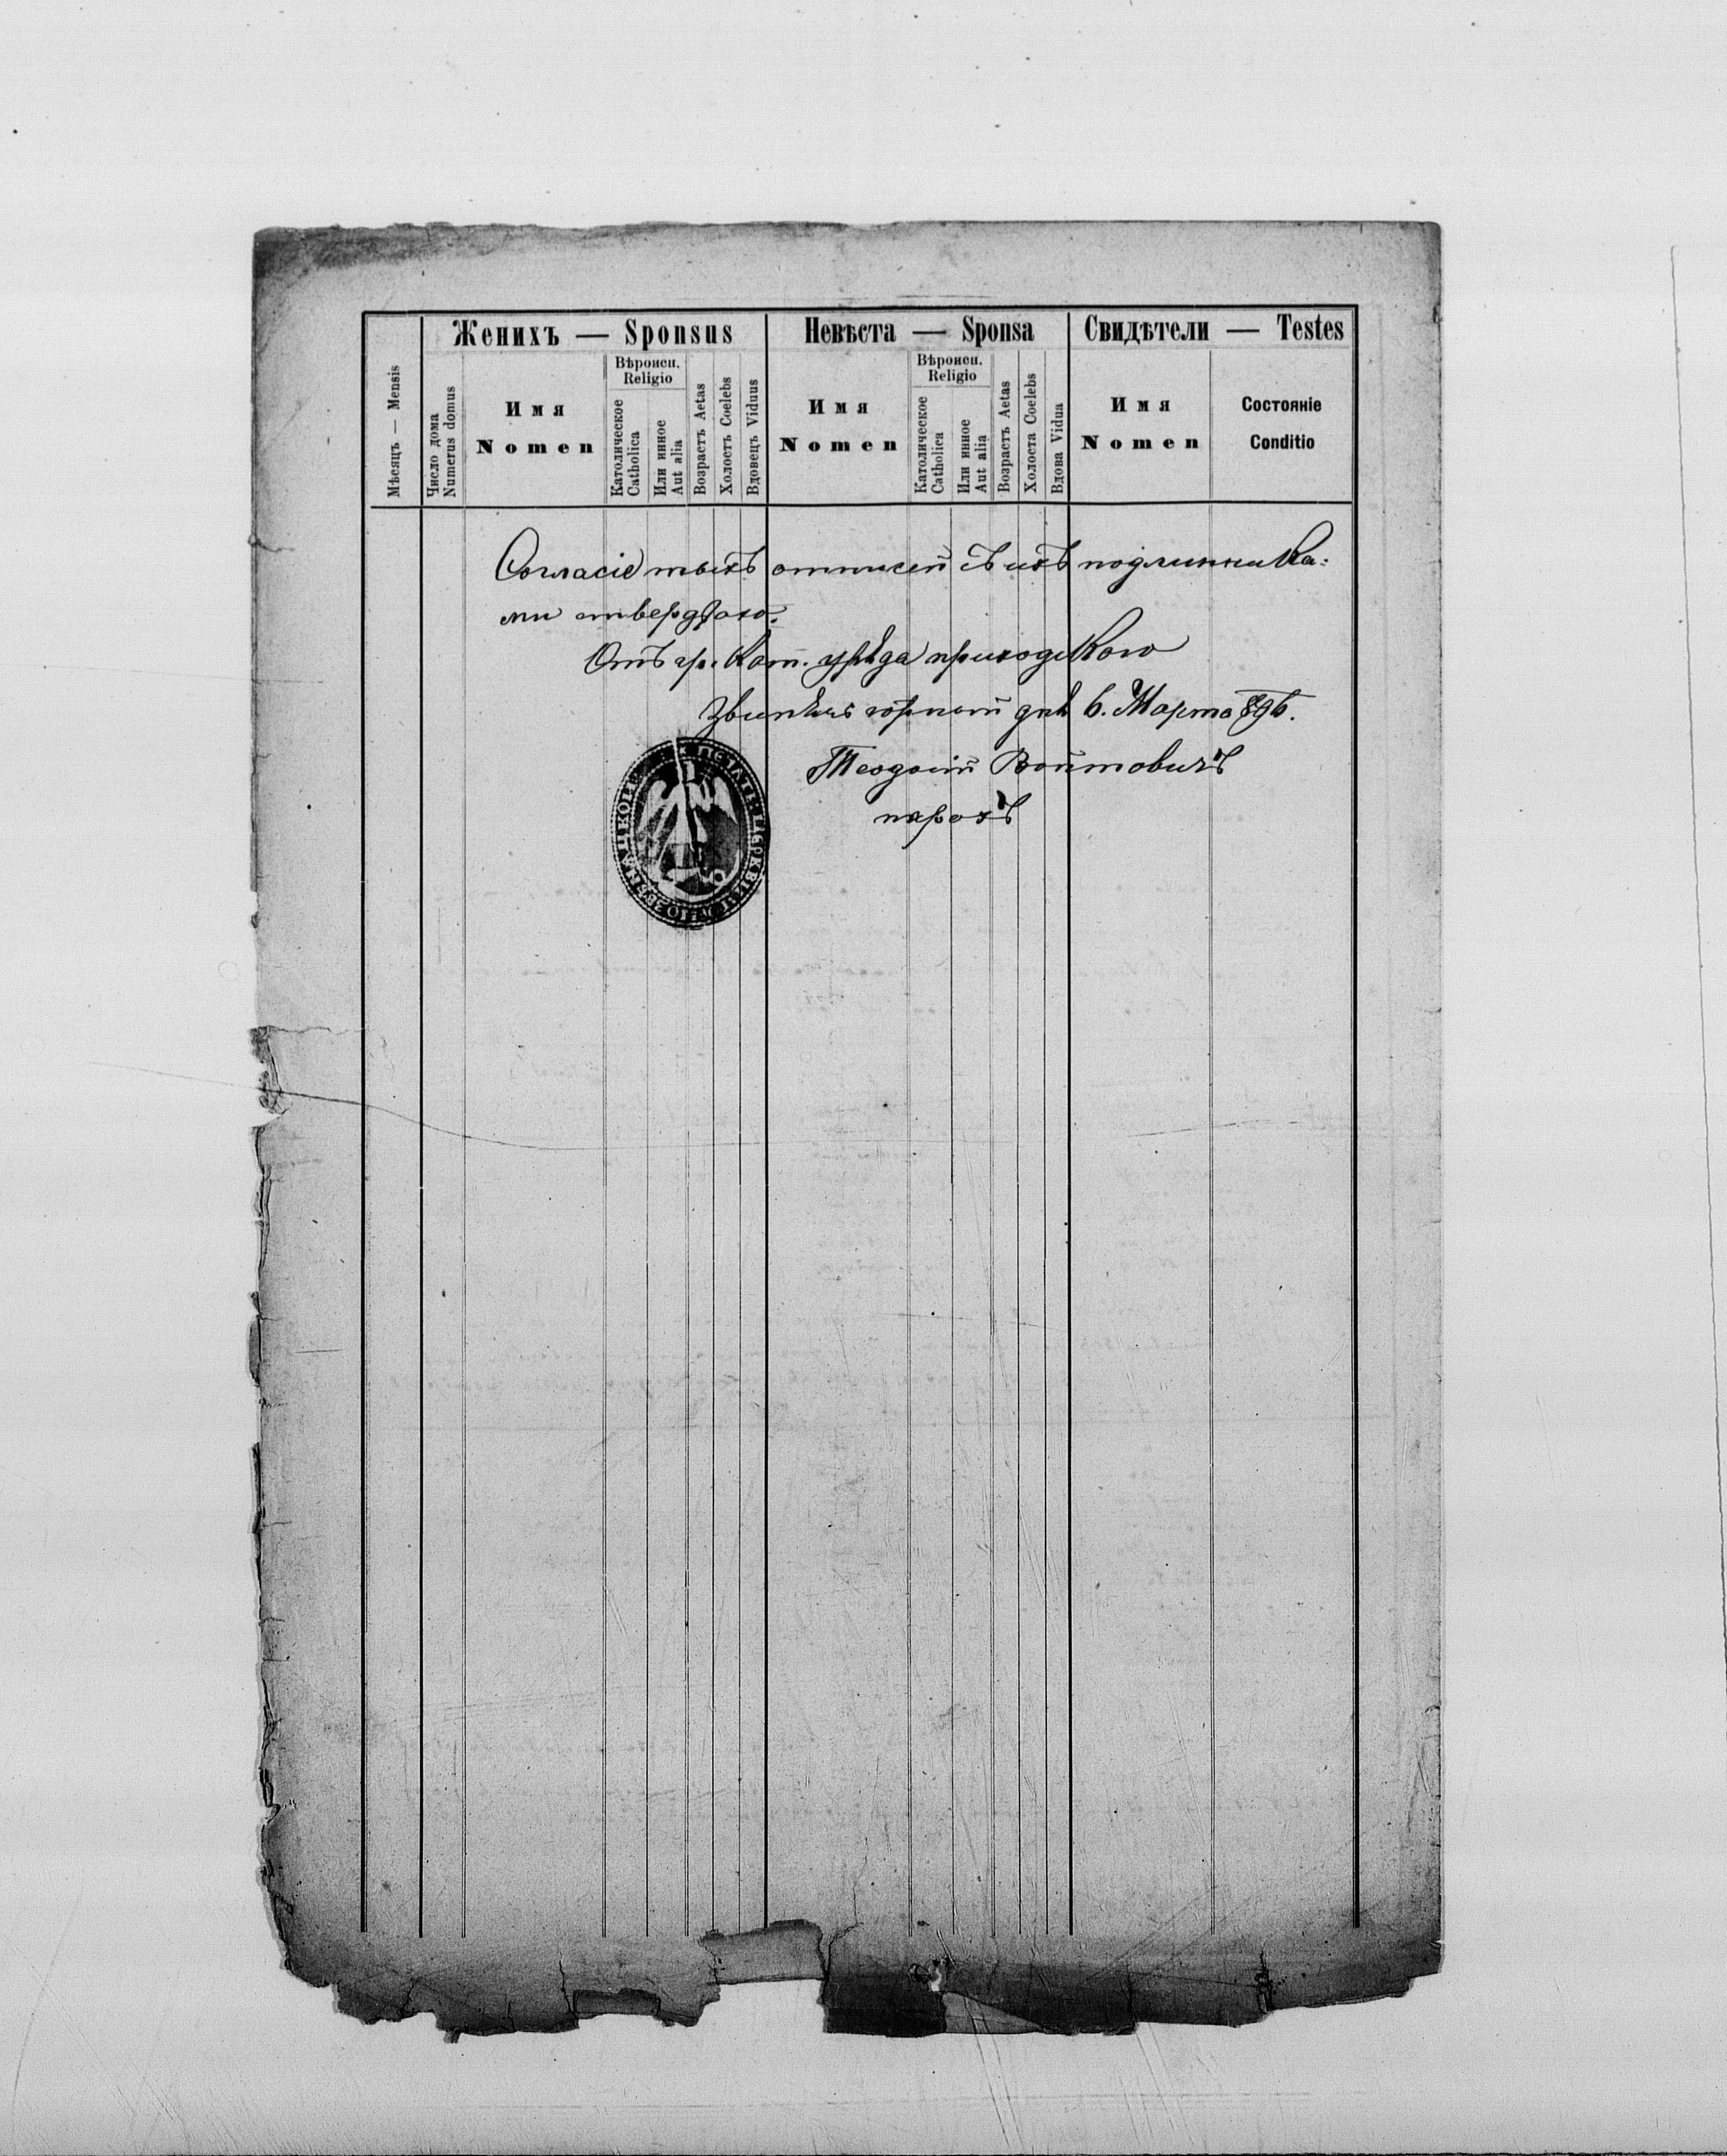 Женихъ — Sponsus
Невѣста — Sponsa
Свидѣтели — Testes
Мѣсяцъ — Mensis
Число дома
Numerus domus
Имя
Nomen
Вѣроисп.
Religio
Католическое
Catholica
Или инное
Aut alia
Возрастъ Aetas
Холостъ Coelebs
Вдовецъ Viduus
Имя
Nomen
Вѣроисп.
Religio
Католическое
Catholica
Или инное
Aut alia
Возрастъ Aetas
Холоста Coelebs
Вдова Vidua
Имя
Nomen
Состояніе
Conditio
Согласіе тыхъ отписей съ ихъ подлинника:
ми отверджаю.
Отъ гр. кат. уряда приходского
днѣ 6. Марта 896.
Теодосій Войтовичъ
парохъ